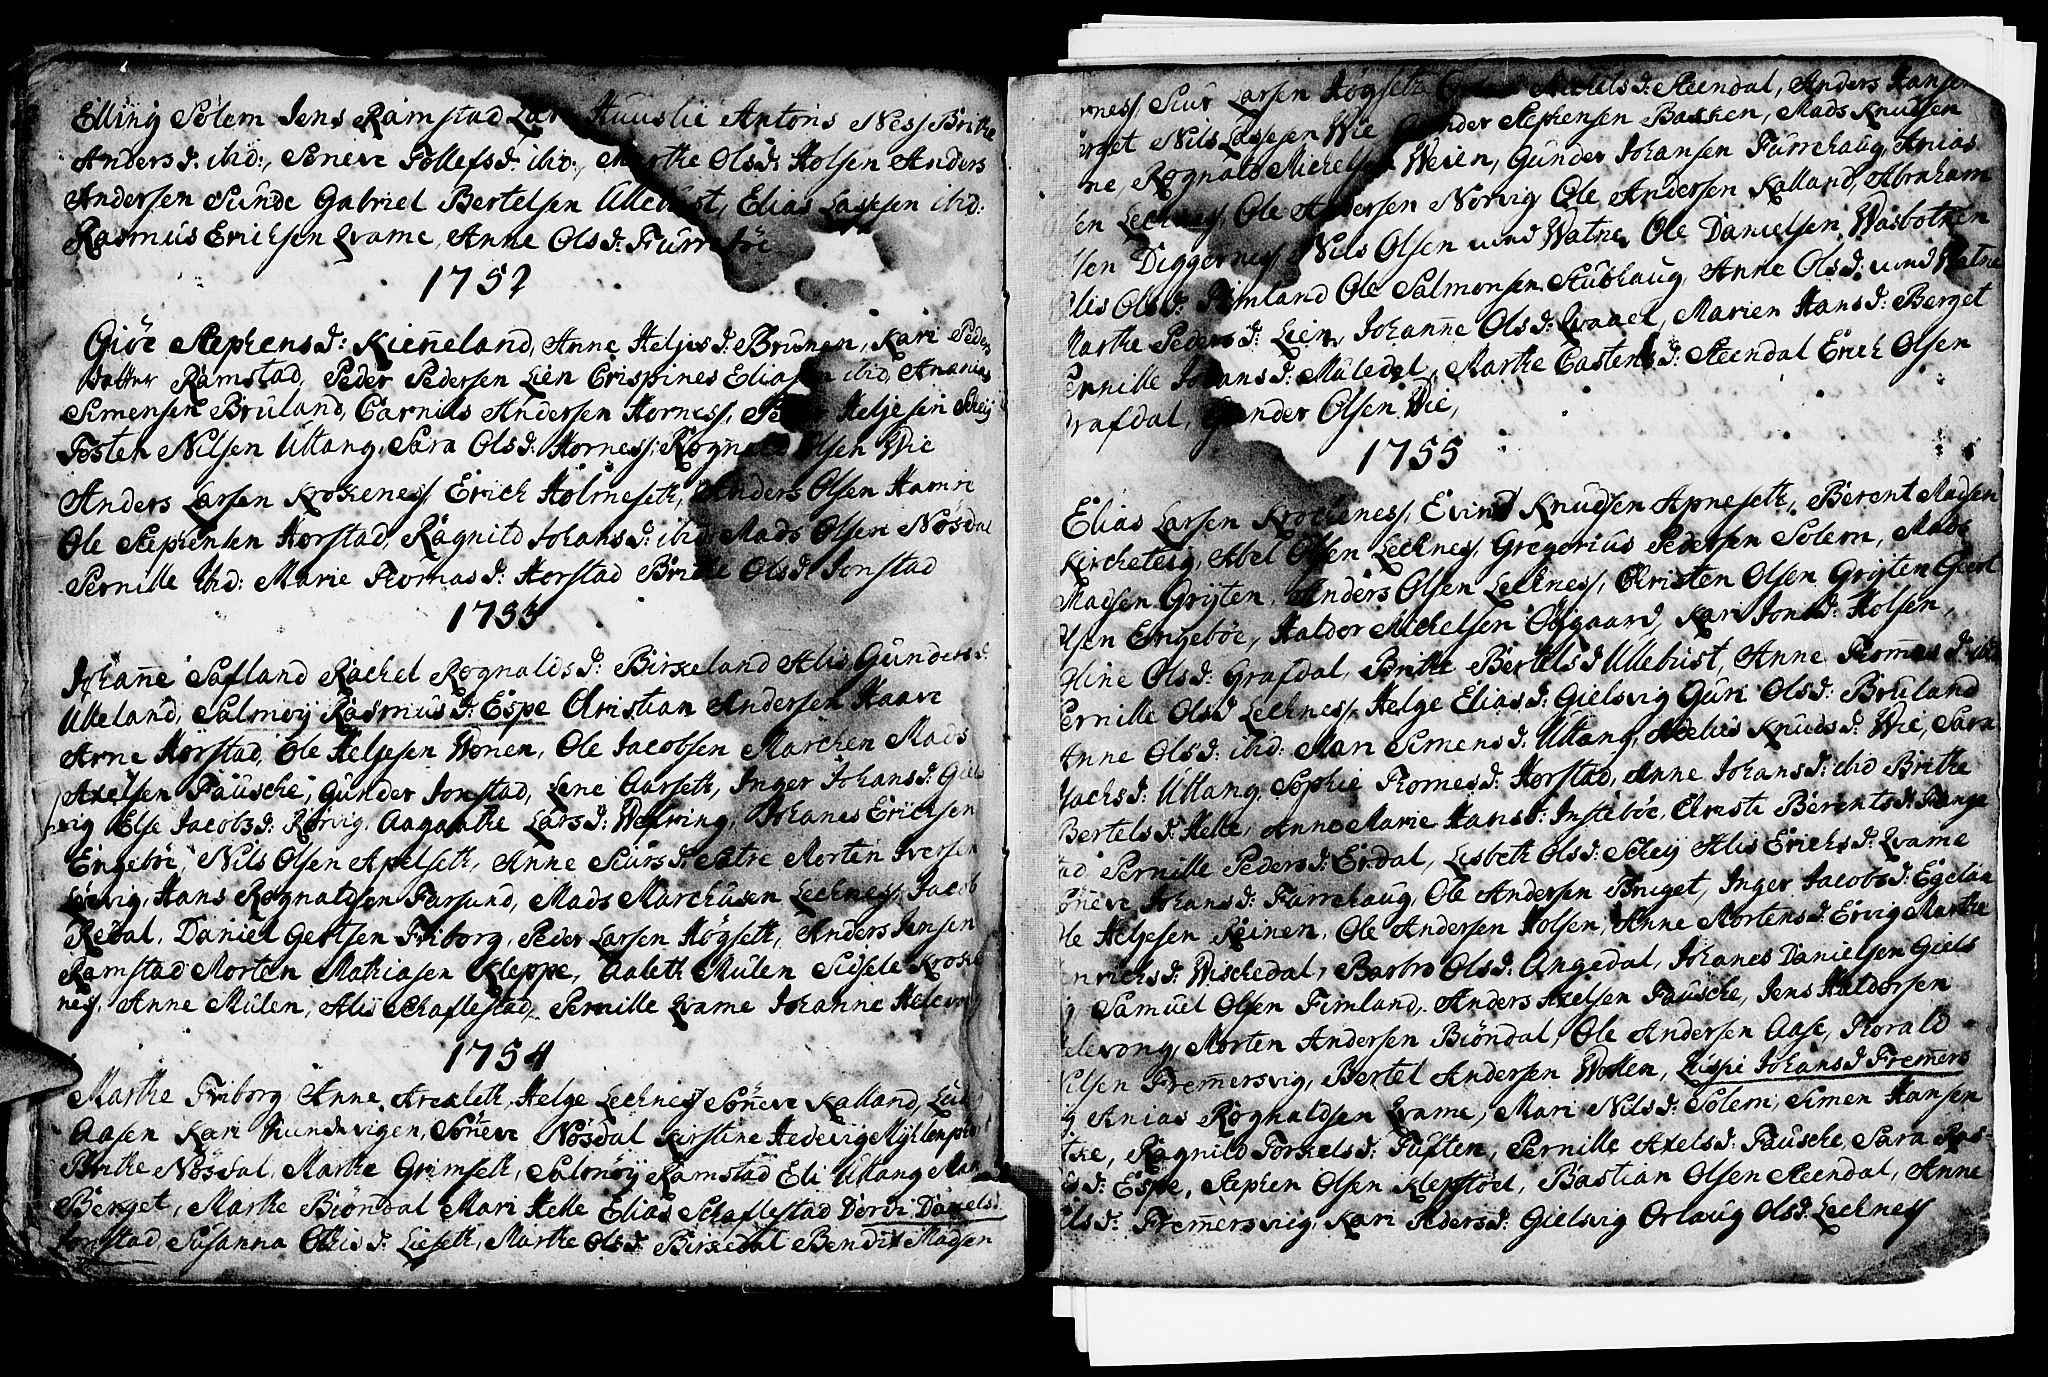 Elling Solem Jens Ramstad Huuslie Antonis Ness Brithe
Anders d: ibid:, Søneve Tollefs d: ibid:, Marthe Ols d: Holsen Anders
Andersen Sunde Gabriel Bertelsen Ullebust, Elias Lassesen ibid:
Rasmus Erichsen Qvame, Anne Ols d: Furrebøe
1752
Giöe Stephens d: Kienneland, Anne Heljes d: Brunen, Kari Peders
datter Ramstad, Peder Pedersen Lien Crispines Eliasen ibid, Ananias
Simensen Bruland, Carnils Andersen Hornes, Heljesen Scheij
Tosten Nilsen Uttang, Sara Ols d: Hornes, Rognald Olsen Wie
Anders Larsen Krokenes Erich Holmeseth, Anders Olsen Hamre
Ole Stephensen Horstad, Ragnild Johans d: ibid: Mads Olsen Nøsdal
Pernille ibid: Marie Thomas d: Horstad Brithe Ols d: Jonstad
1753
Johanne Safland Rachel Rognalds d: Birkeland Alis Gunders d:
Ulleland, Salmøij Rasmus d: Espe Christian Andersen Haave
Arne Horstad, Ole Heljesen Wonen, Ole Jacobsen Marchen Mads
Axelsen Fausche, Gunder Jonstad, Lene Aarseth, Inger Johans d: Giels
vig Else Jacobs d: Rørvig, Aagaathe Lars d: Wefring, Johanes Erichsen
Engebøe, Nils Olsen Apelseth, Anne Siurs d: Sætre Morten Iversen
Lørvig, Hans Rognaldsen Farsund, Mads Marchusen Lechnes, Jacob
Redal, Daniel Gertsen Friborg, Peder Larsen Høgseth, Anders Jensen
Ramstad Morten Mathiasen Kleppe, Aaleth Mulen Sidsele Kroke
nes, Anne Mulen, Alis Schaflestad, Pernille Qvame Johanne Helevong
1754
Marthe Friborg, Anne Areseth, Helge Lechnes Sønneve Kalland,
Aasen Kari Sundvigen, Sønneve Nøsdal Kirstine Hedevig
Brithe Nøsdal, Marthe Grimseth, Salmøij Ramstad Eli Uttang
Berget, Marthe Biøndal Mari Helle Elias Schaflestad Dordi Daniels d
Jonstad, Susanna Ottis d: Lieseth, Marthe Ols d: Birkedal Bendix Madsen
Siur Larsen Høgseth Michels d: Steendal, Anders Hansen
Nils Lassesen Wie Gunder Stephensen Bakken, Mads Knudsen
Rognald Michelsen Weien, Gunder Johansen Furrehaug, Anias
Lechnes, Ole Andersen Norvig Ole Andersen Kalland, Abraham
Diggernes, Nils Olsen und Watne, Ole Danielsen Wasbotten
Alis Ols d: Fimland Ole Salmonsen Stubhaug, Anne Ols d: und Watne
Marthe Peders d: Lien, Johanne Ols d: Qvaael, Marien Hans d: Berget
Pernille Johans d: Muledal, Marthe Castens d: Steendal Erich Olsen
Grafdal, Gunder Olsen Wie,
1755
Elias Larsen Krockenes, Evind Knudsen Apneseth, Berent Madsen
Kircheteig, Abel Olsen Lechnes, Gregorius Pedersen Solem, Mads
Madsen Grijten, Anders Olsen Lechnes, Christen Olsen Grijten Giert
Olsen Engebøe, Haldor Michelsen Odgaard, Kari Jons d: Holsen,
Oline Ols d: Grafdal, Brithe Bertels d Ullebust, Anne Thommes d: ibid
Pernille Ols d Lechnes, Helge Elias d: Gielsvig Guri Ols d: Bruland
Anne Ols d: ibid: Mari Simens d: Uttang, Knuds d: Wie, Sara
Uttang Sophie Thomes d: Horstad, Anne Johans d: ibid Brithe
Bertels d: Helle, Anne Marie Hans d: Instebøe, Christe Berents d: Tange
Pernille Peders d: Erdal, Lisbeth Ols d: Scheij Alis Erichs d: Qvame
Sønneve Johans d: Furrehaug, Ole Andersen Bruget, Inger Jacobs d: Egelan
Ole Heljesen Reinen, Ole Andersen Holsen, Anne Mortens d: Ervig Marthe
Wischedal, Barbro Ols d: Angedal, Johanes Danielsen Giels
Samuel Olsen Fimland, Anders Axelsen Fausche, Jens Haldorsen
Helevong, Morten Andersen Biøndal, Ole Andersen Aase, Thorald
Nilsen Fremmersvig, Bertel Andersen Wollen, Johans d Fremmers
Anias Rognaldsen Qvame, Mari Nils d: Solem, Simen Hansen
Ragnild Torkels d: Tuften, Pernille Axels d: Fausche, Sara Ras-
d: Espe, Stephen Olsen Klepstoel, Bastian Olsen Steendal, Anne
Nils d: Fremmersvig, Kari Anders d: Gielsvig Orlaug Ols d: Lechnes